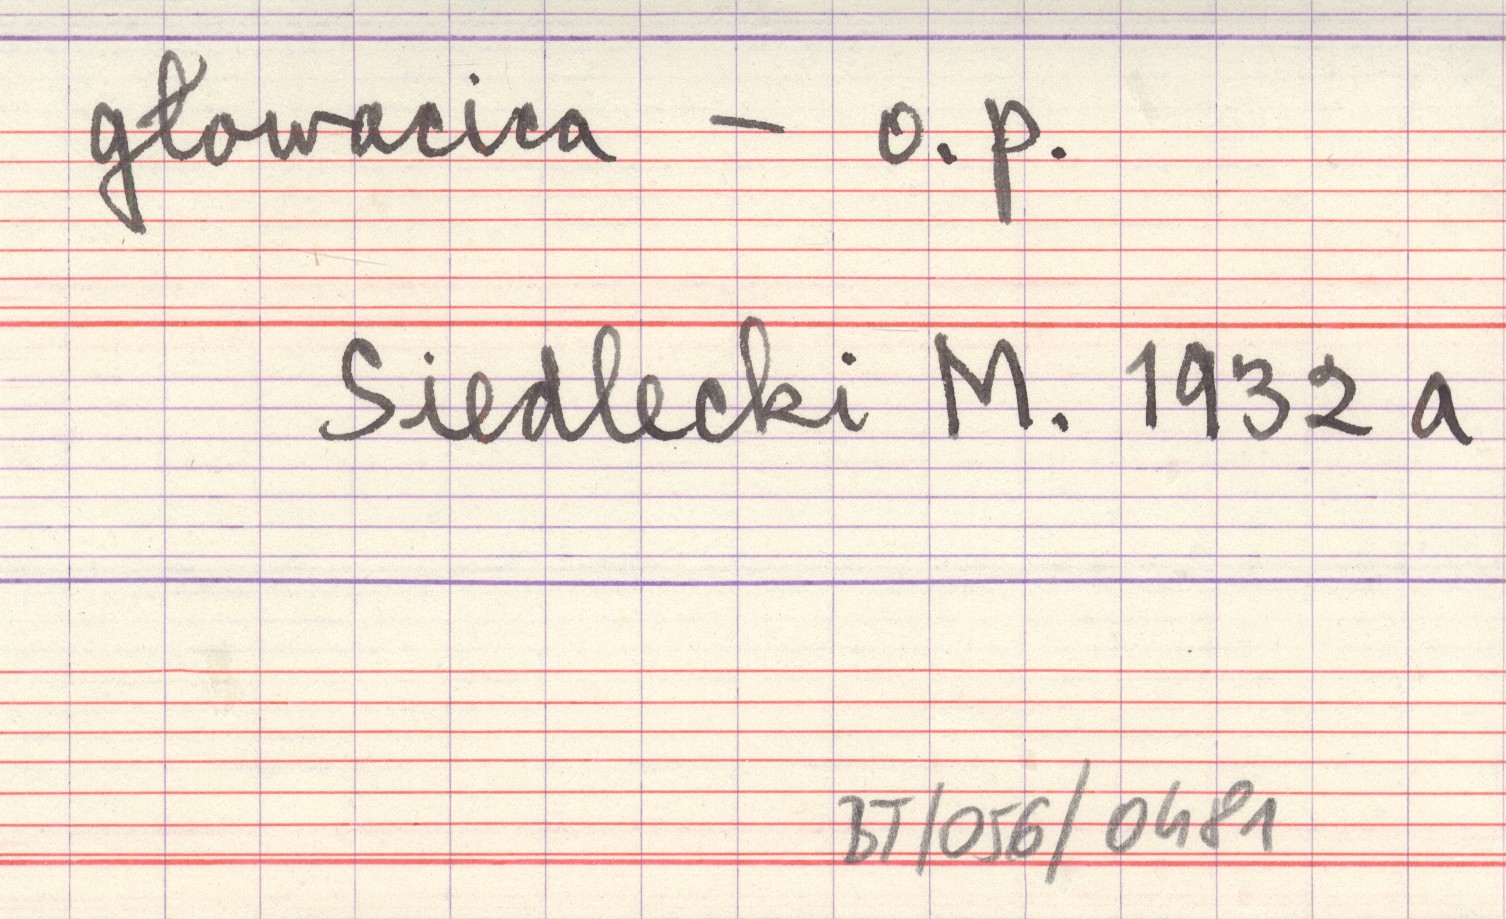 głowacica - o.p.
Siedlecki M. 1932 a
BT/056/0481